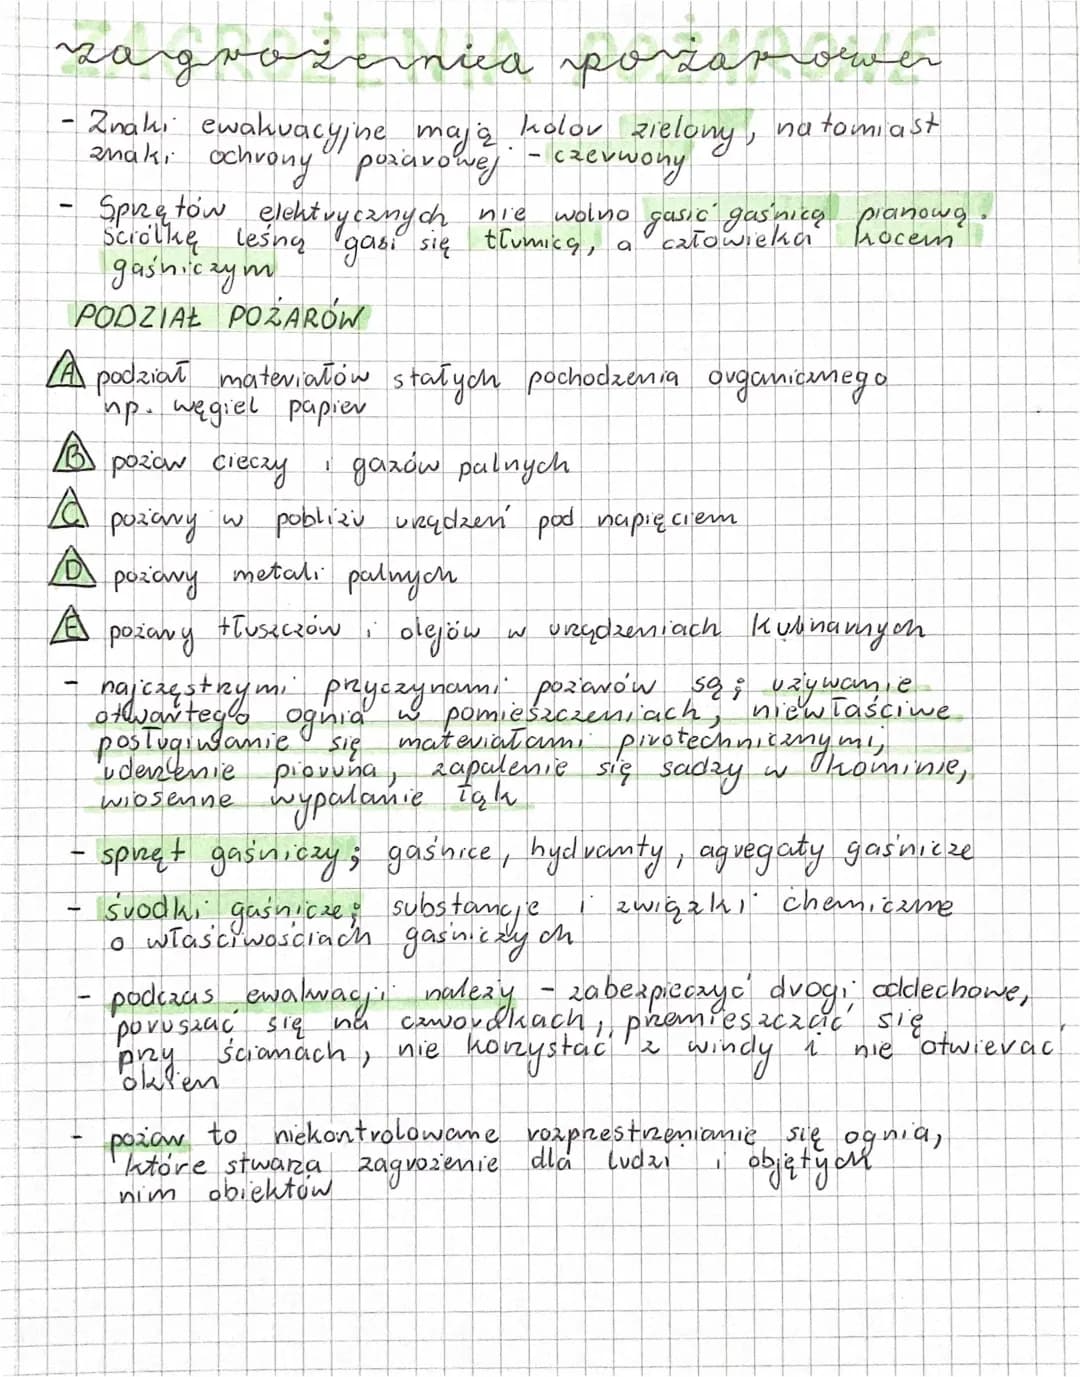 zagrożenia pożarowe
- Znaki ewakuacyjne mają kolor zielony, natomiast
znaki ochrony pożarowej - czerwony
- Sprzętów elektrycznych nie wolno gasić gaśnicą pianową.
Ściółkę leśną gasi się tłumicą, a człowieka kocem
gaśniczym
PODZIAŁ POŻARÓW
A podział materiałów stałych pochodzenia organicznego
np. węgiel papier
B pożar cieczy i gazów palnych
C pożary w pobliżu urządzeń pod napięciem
D pożary metali palnych
E pożary tłuszczów i olejów w urządzeniach kulinarnych
- najczęstrzymi przyczynami pożarów są; używanie
otwartego ognia w pomieszczeniach, niewłaściwe
posługiwanie się materiałami pirotechnicznymi,
uderzenie pioruna, zapalenie się sadzy w kominie,
wiosenne wypalanie łąk
- sprzęt gaśniczy; gaśnice, hydranty, agregaty gaśnicze
- środki gaśnicze; substancje i związki chemiczne
o właściwościach gaśniczych
- podczas ewakuacji należy - zabezpieczyć drogi oddechowe,
poruszać się na czworakach, przemieszczać się
przy ścianach, nie korzystać z windy i nie otwierać
okien
- pożar to niekontrolowane rozprzestrzenianie się ognia,
które stwarza zagrożenie dla ludzi i objętych
nim obiektów